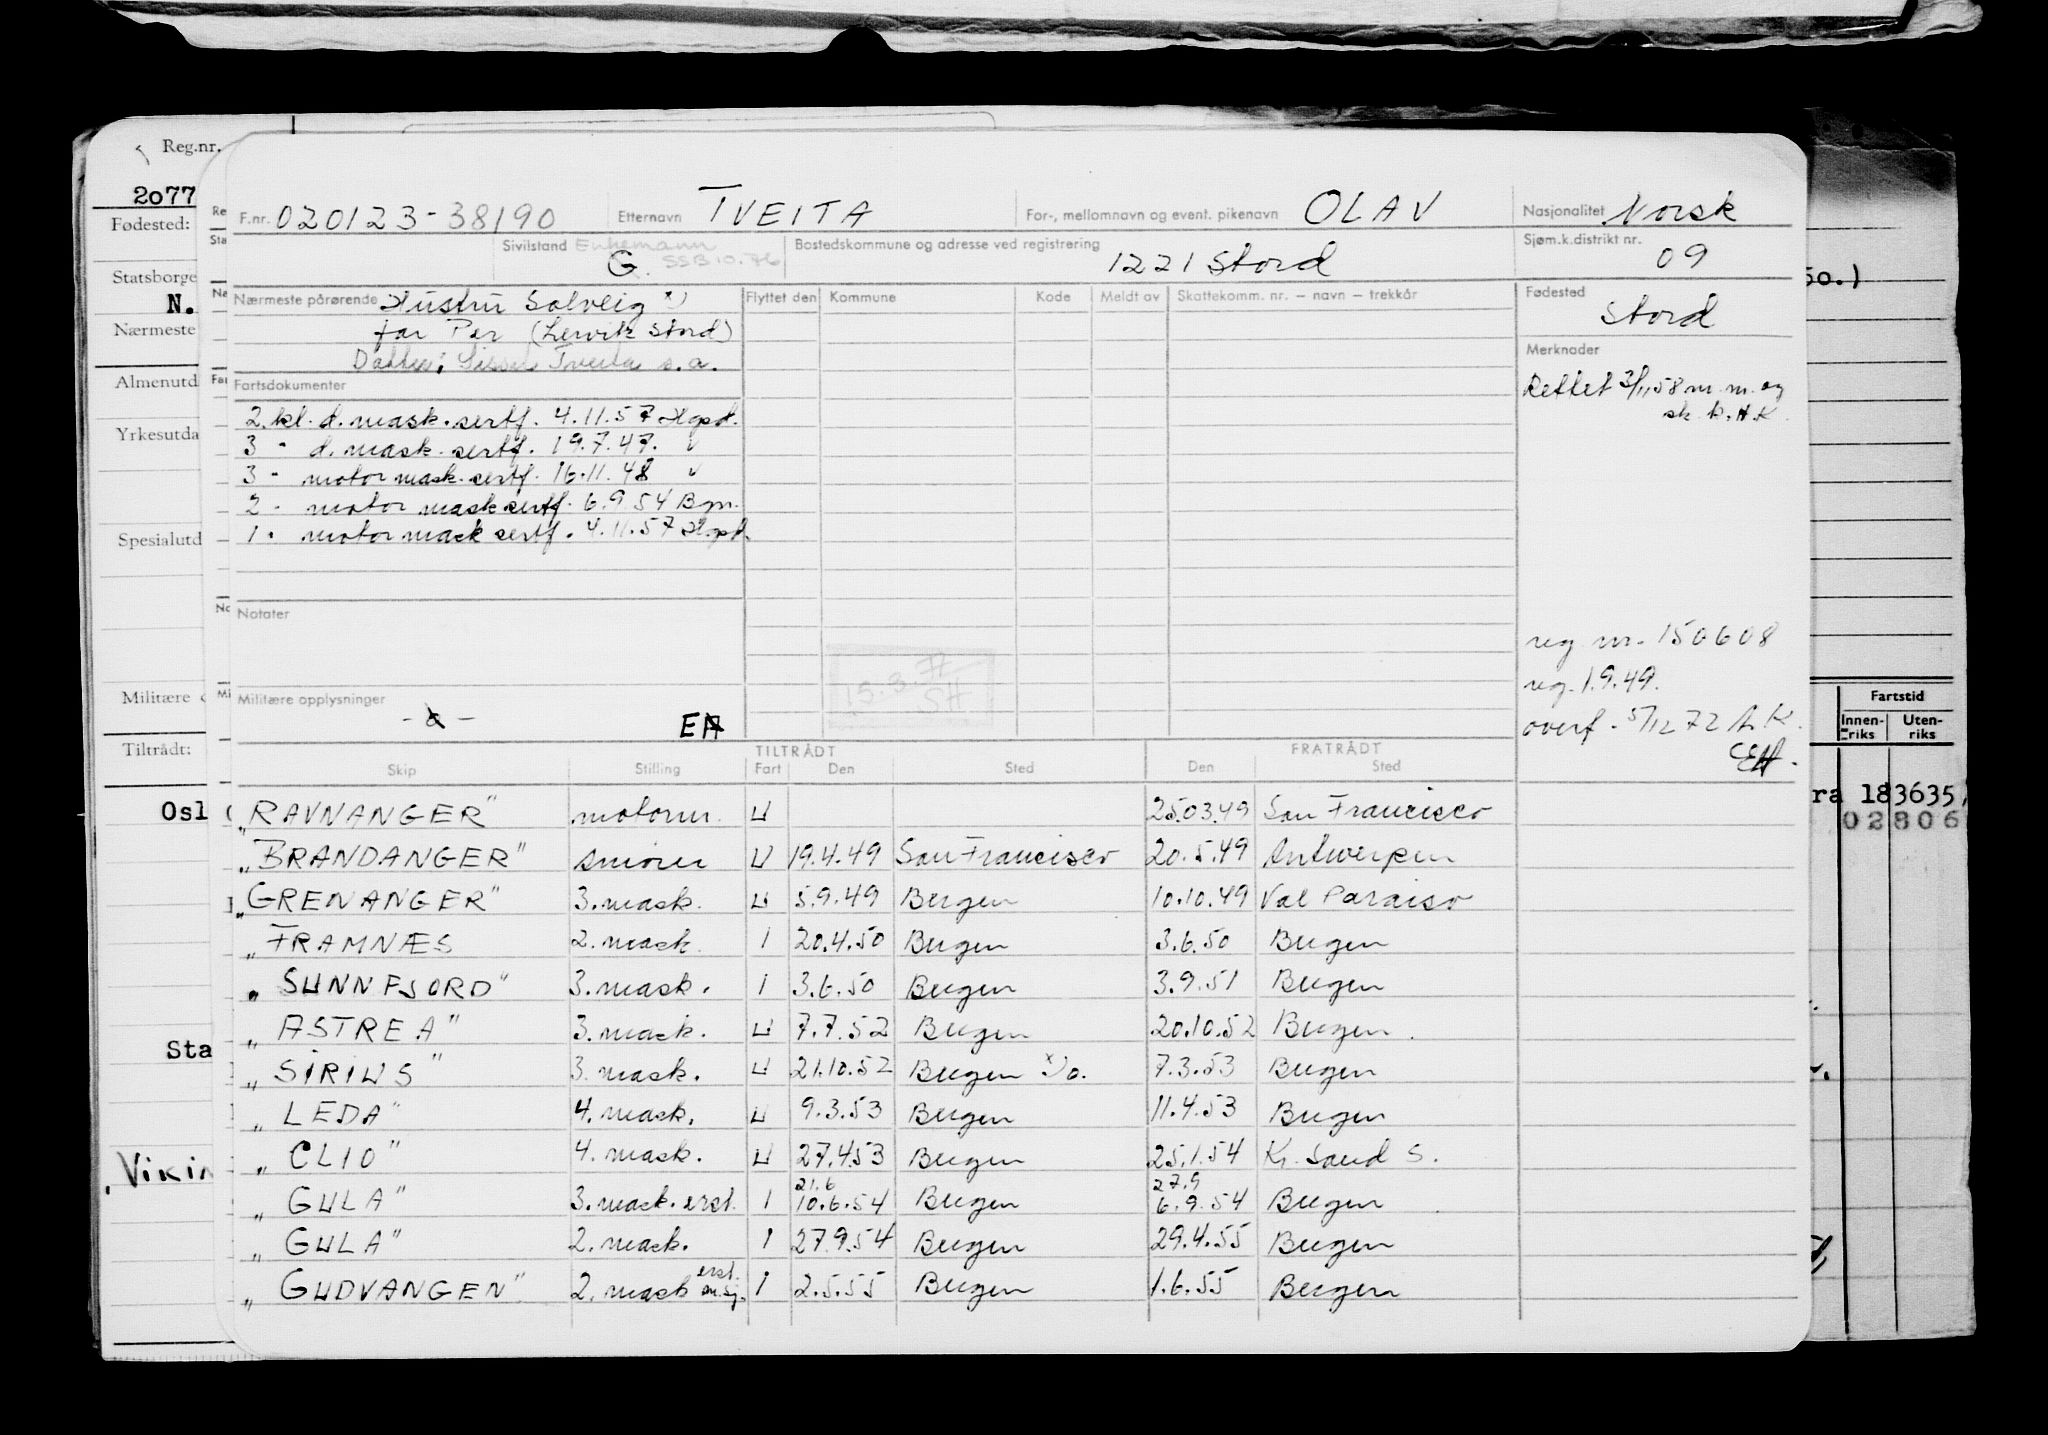 Reg.nr.
2077
Fødested:
Statsborge
N.
Nærmeste
Almenutd
Yrkesutda
Spesialutd
Militære
Tiltrådt:
Oslo
Sta
Vikin
F.nr. 020123-38190 Etternavn TVEITA For-, mellomnavn og event. pikenavn OLAV Nasjonalitet Norsk
Sivilstand Enkemann SSB 10.76 G. Bostedskommune og adresse ved registrering 1221 Stord Sjøm.k.distrikt nr. 09
Nærmeste pårørende Hustru Solveig x) Flyttet den Kommune Kode Meldt av Skattekomm. nr. – navn – trekkår Fødested Stord
far Per (Lervik Stord)
Datter: Sissel Tveita s.a.
Merknader
Rettet 3/11 58 m.m. og
sk. k. H.K.
Fartsdokumenter
2. kl. d. mask. sertf. 4.11.57 Hgsd.
3 - d. mask. sertf. 19.7.47. "
3 - motor mask. sertf. 16.11.48 "
2 - motor mask sertf. 6.9 54 Bgn.
1 . motor mask sertf. 4.11.57 Hgsd.
Notater
15.3.77
SH
reg nr. 150608
reg. 1.9.49.
overf. 5/12 72 A.K.
EH.
Militære opplysninger
EH
TILTRÅDT FRATRÅDT
Skip Stilling Fart Den Sted Den Sted
"RAVNANGER" motorm. U 25.03.49 San Francisco
"BRANDANGER" smører U 19.4.49 San Francisco 20.5.49 Antwerpen
"GRENANGER" 3. mask. U 5.9.49 Bergen 10.10.49 Val Paraiso
"FRAMNÆS 2. mask. I 20.4.50 Bergen 3.6.50 Bergen
"SUNNFJORD" 3. mask. I 3.6.50 Bergen 3.9.51 Bergen
"ASTREA" 3. mask. U 7.7.52 Bergen 20.10.52 Bergen
"SIRIUS" 3. mask. U 21.10.52 Bergen x) o. 7.3.53 Bergen
"LEDA" 4. mask. U 9.3.53 Bergen 11.4.53 Bergen
"CLIO" 4. mask. U 27.4.53 Bergen 25.1.54 Kr. Sand S.
21.6 27.9
"GULA" 3. mask. erst. I 10.6.54 Bergen 6.9.54 Bergen
"GULA" 2. mask. I 27.9.54 Bergen 29.4.55 Bergen
"GUDVANGEN" 2. mask erst. I 2.5.55 Bergen 1.6.55 Bergen
50.)
Fartstid
Innen-riks Uten-riks
ra 183635,
02806